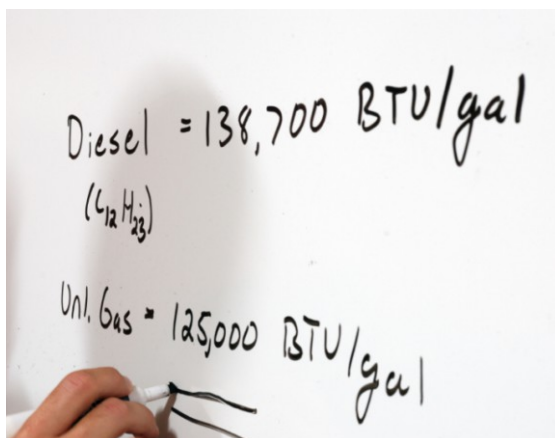 Diesel = 138,700 BTU/gal
(C₁₂H₂₃)
Unl. Gas = 125,000 BTU/gal